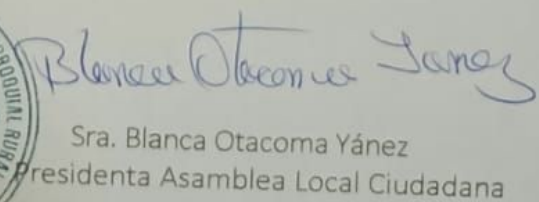 Blanca Otacoma Yanez
Sra. Blanca Otacoma Yánez
Presidenta Asamblea Local Ciudadana
PARROQUIAL RURAL